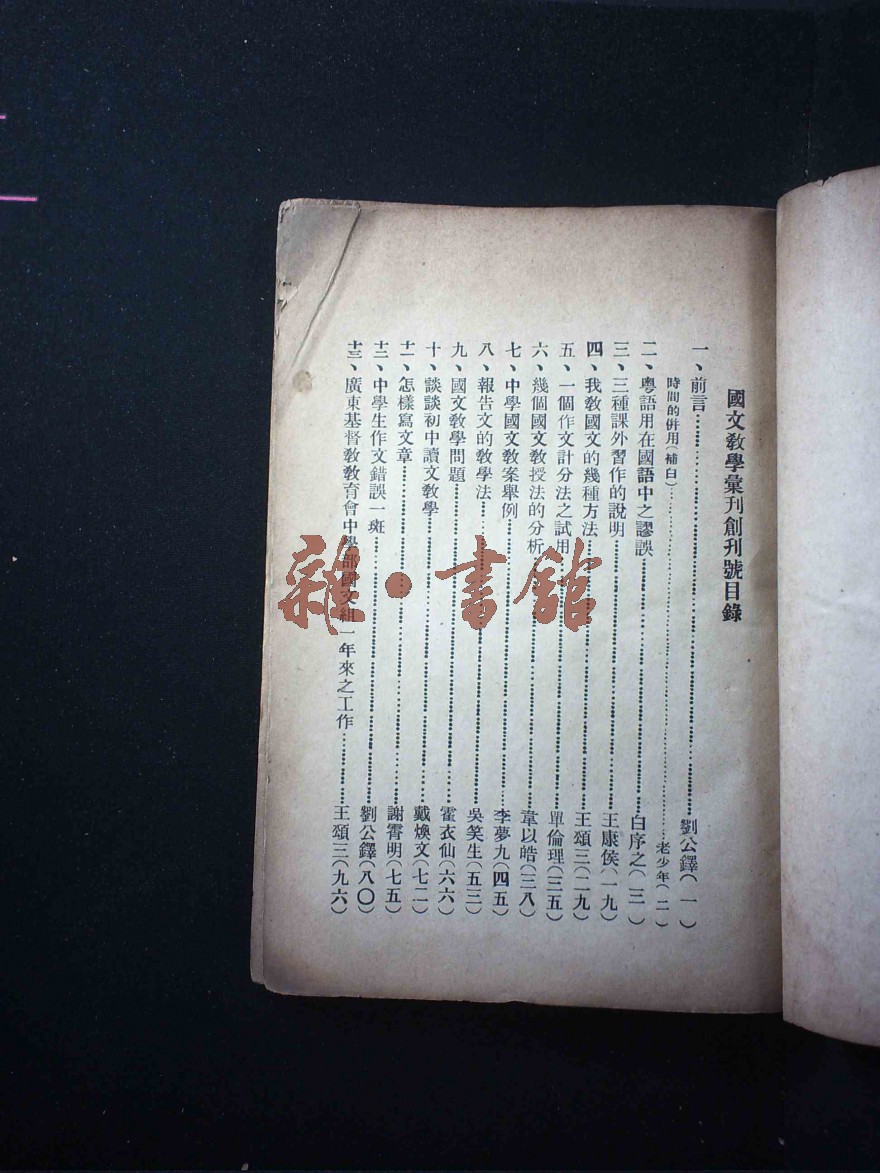 國文教學彙刊創刊號目錄
一、前言……劉公鐸(一)
時間的併用(補白)……老少年(二)
二、粵語用在國語中之謬誤……白序之(三)
三、三種課外習作的說明……王康侯(一九)
四、我教國文的幾種方法……王頌三(二九)
五、一個作文計分法之試用……單倫理(三五)
六、幾個國文教授法的分析……韋以皓(三八)
七、中學國文教案舉例……李夢九(四五)
八、報告文的教學法……吳笑生(五三)
九、國文教學問題……霍衣仙(六六)
十、談談初中讀文教學……戴煥文(七二)
十一、怎樣寫文章……謝霄明(七五)
十二、中學生作文錯誤一斑……劉公鐸(八〇)
十三、廣東基督教教育會中學部國文組一年來之工作……王頌三(九六)
雜·書館